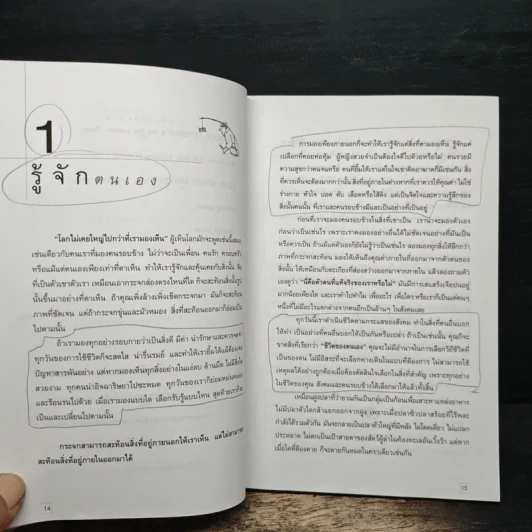 1
รู้จักตนเอง
"โลกไม่เคยใหญ่ไปกว่าที่เรามองเห็น" ผู้เห็นโลกมักจะพูดเช่นนี้เสมอ
เช่นเดียวกับคนเราที่มองคนรอบข้าง ไม่ว่าจะเป็นเพื่อน คนรัก ครอบครัว
หรือแม้แต่ตนเองเพียงเท่าที่ตาเห็น ทำให้เรารู้จักและคุ้นเคยกับสิ่งนั้น สิ่ง
ที่เป็นตัวเขาตัวเรา เหมือนเอากระจกส่องตรงไหนที่ใด ก็จะสะท้อนสิ่งนั้นรูป
นั้นขึ้นมาอย่างที่ตาเห็น ถ้าคุณเพิ่งล้างเพิ่งเช็ดกระจกมา มันก็จะสะท้อน
ภาพที่ชัดเจน แต่ถ้ากระจกขุ่นและมัวหมอง สิ่งที่สะท้อนออกมาก็ย่อมเป็น
ไปตามนั้น
ถ้าเรามองทุกอย่างรอบกายว่าเป็นสิ่งดี มีค่า น่ารักและควรจดจำ
ทุกวันของการใช้ชีวิตก็จะสดใส น่ารื่นรมย์ และทำให้เรายิ้มได้แม้ต้องเจอ
ปัญหาสารพันอย่าง แต่หากมองเห็นทุกสิ่งอย่างในแง่ลบ ด้านมืด ไม่มีสิ่งใด
สวยงาม ทุกคนน่าอิจฉาริษยาไปซะหมด ทุกวันของเราก็ย่อมหม่นหมอง
และร้อนรนไปด้วย เมื่อเรามองแบบใด เลือกรับรู้แบบไหน สุดท้ายเราก็จะ
เป็นและเปลี่ยนไปตามนั้น
กระจกสามารถสะท้อนสิ่งที่อยู่ภายนอกให้เราเห็น แต่ไม่สามารถ
สะท้อนสิ่งที่อยู่ภายในออกมาได้
14
การมองเพียงภายนอกก็จะทำให้เรารู้จักแค่สิ่งที่ตามองเห็น รู้จักแค่
เปลือกที่คอยห่อหุ้ม ผู้หญิงสวยจำเป็นต้องใจดีไปด้วยหรือไม่ คนรวยมี
ความสุขกว่าคนจนหรือ คนที่ยิ้มให้เราแต่ในใจเขาคิดอาฆาตก็มีเช่นกัน สิ่ง
ที่ควรเห็นจะต้องมากกว่านั้น สิ่งที่อยู่ภายในต่างหากที่เราควรให้คุณค่า ไม่ใช่
ร่างกาย หัวใจ ปอด ตับ เลือดหรือไส้ติ่ง แต่เป็นจิตใจและความรู้สึกของ
สิ่งนั้นคนนั้น ที่เราและคนรอบข้างมีและเป็นอย่างที่เป็นอยู่
ก่อนที่เราจะมองคนรอบข้างในสิ่งที่เขาเป็น เราน่าจะมองตัวเอง
ก่อนว่าเป็นเช่นไร เพราะเราคงมองอย่างอื่นได้ไม่ชัดเจนอย่างที่มันเป็น
หรือควรเป็น ถ้าแม้แต่ตัวเองก็ยังไม่รู้ว่าเป็นเช่นไร ลองมองทุกสิ่งให้ลึกกว่า
ภาพที่กระจกสะท้อน มองให้เห็นถึงคุณค่าภายในที่ออกมาจากตัวตนของ
สิ่งนั้น ให้เหมือนกับตะเกียงที่ส่องสว่างออกมาจากภายใน แล้วลองถามตัว
เองดูว่า "นี่คือตัวตนที่แท้จริงของเราหรือไม่" มันมีการเสแสร้งเจือปนอยู่
มากน้อยเพียงใด และเราทำไปทำไม เพื่ออะไร เพื่อใคร หรือเราก็เป็นแค่คนๆ
หนึ่งที่ไม่มีอะไรแตกต่างจากคนอีกเป็นล้านๆ ในสังคมเลย
ทุกวันนี้เราดำเนินชีวิตตามกระแสสังคม ทำในสิ่งที่คนอื่นบอก
ให้ทำ เป็นอย่างที่คนอื่นบอกให้เป็นกันหรือเปล่า ถ้าเป็นเช่นนั้น คุณก็จะ
ขาดสิ่งที่เรียกว่า "ชีวิตของตนเอง" คุณจะไม่มีอำนาจในการเลือกวิถีชีวิตที่
เป็นของตน ไม่มีอิสระที่จะเลือกทางเดินในแบบที่ต้องการ ไม่สามารถใช้
เหตุผลได้อย่างถูกต้องเมื่อต้องตัดสินใจเลือกในสิ่งที่สำคัญ เพราะทุกอย่าง
ในชีวิตของคุณ สังคมและคนรอบข้างได้เลือกมาให้แล้วทั้งสิ้น
เหมือนฝูงปลาที่ว่ายวนกันเป็นกลุ่มเป็นก้อนเพื่อเสาะหาแหล่งอาหาร
ไม่มีปลาตัวใดกล้าแยกออกจากฝูง เพราะเมื่อปลาซิวปลาสร้อยที่ไร้พละ
กำลังได้รวมตัวกัน มันจะกลายเป็นปลาตัวใหญ่ที่มีพลัง ไม่โดดเดี่ยว ไม่แปลก
ประหลาด ไม่ตกเป็นเป้าสายตาของสัตว์ผู้ล่าในท้องทะเลอันเวิ้งว้า แต่หาก
เมื่อใดที่ต้องตาย ก็จะตายกันหมดในคราวเดียวเช่นกัน
15